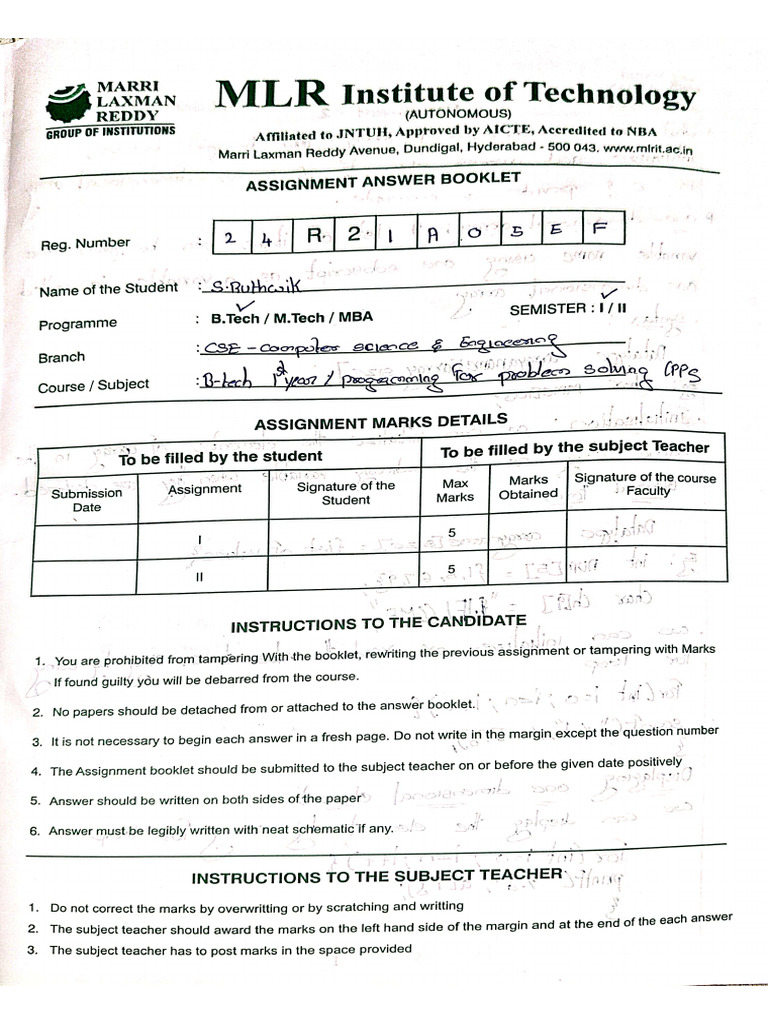 MARRI
LAXMAN
REDDY
GROUP OF INSTITUTIONS
MLR Institute of Technology
(AUTONOMOUS)
Affiliated to JNTUH, Approved by AICTE, Accredited to NBA
Marri Laxman Reddy Avenue, Dundigal, Hyderabad - 500 043. www.mlrit.ac.in
ASSIGNMENT ANSWER BOOKLET
Reg. Number : 2 4 R 2 1 A 0 5 E F
Name of the Student : S.Ruthwik
Programme : B.Tech / M.Tech / MBA SEMISTER : I / II
Branch : CSE - Computer science & Engineering
Course / Subject : B-tech 1st year / programming for problem solving (PPS
ASSIGNMENT MARKS DETAILS
To be filled by the student To be filled by the subject Teacher
Submission Date Assignment Signature of the Student Max Marks Marks Obtained Signature of the course Faculty
I 5
II 5
INSTRUCTIONS TO THE CANDIDATE
1. You are prohibited from tampering With the booklet, rewriting the previous assignment or tampering with Marks
If found guilty you will be debarred from the course.
2. No papers should be detached from or attached to the answer booklet.
3. It is not necessary to begin each answer in a fresh page. Do not write in the margin except the question number
4. The Assignment booklet should be submitted to the subject teacher on or before the given date positively
5. Answer should be written on both sides of the paper
6. Answer must be legibly written with neat schematic if any.
INSTRUCTIONS TO THE SUBJECT TEACHER
1. Do not correct the marks by overwritting or by scratching and writting
2. The subject teacher should award the marks on the left hand side of the margin and at the end of the each answer
3. The subject teacher has to post marks in the space provided